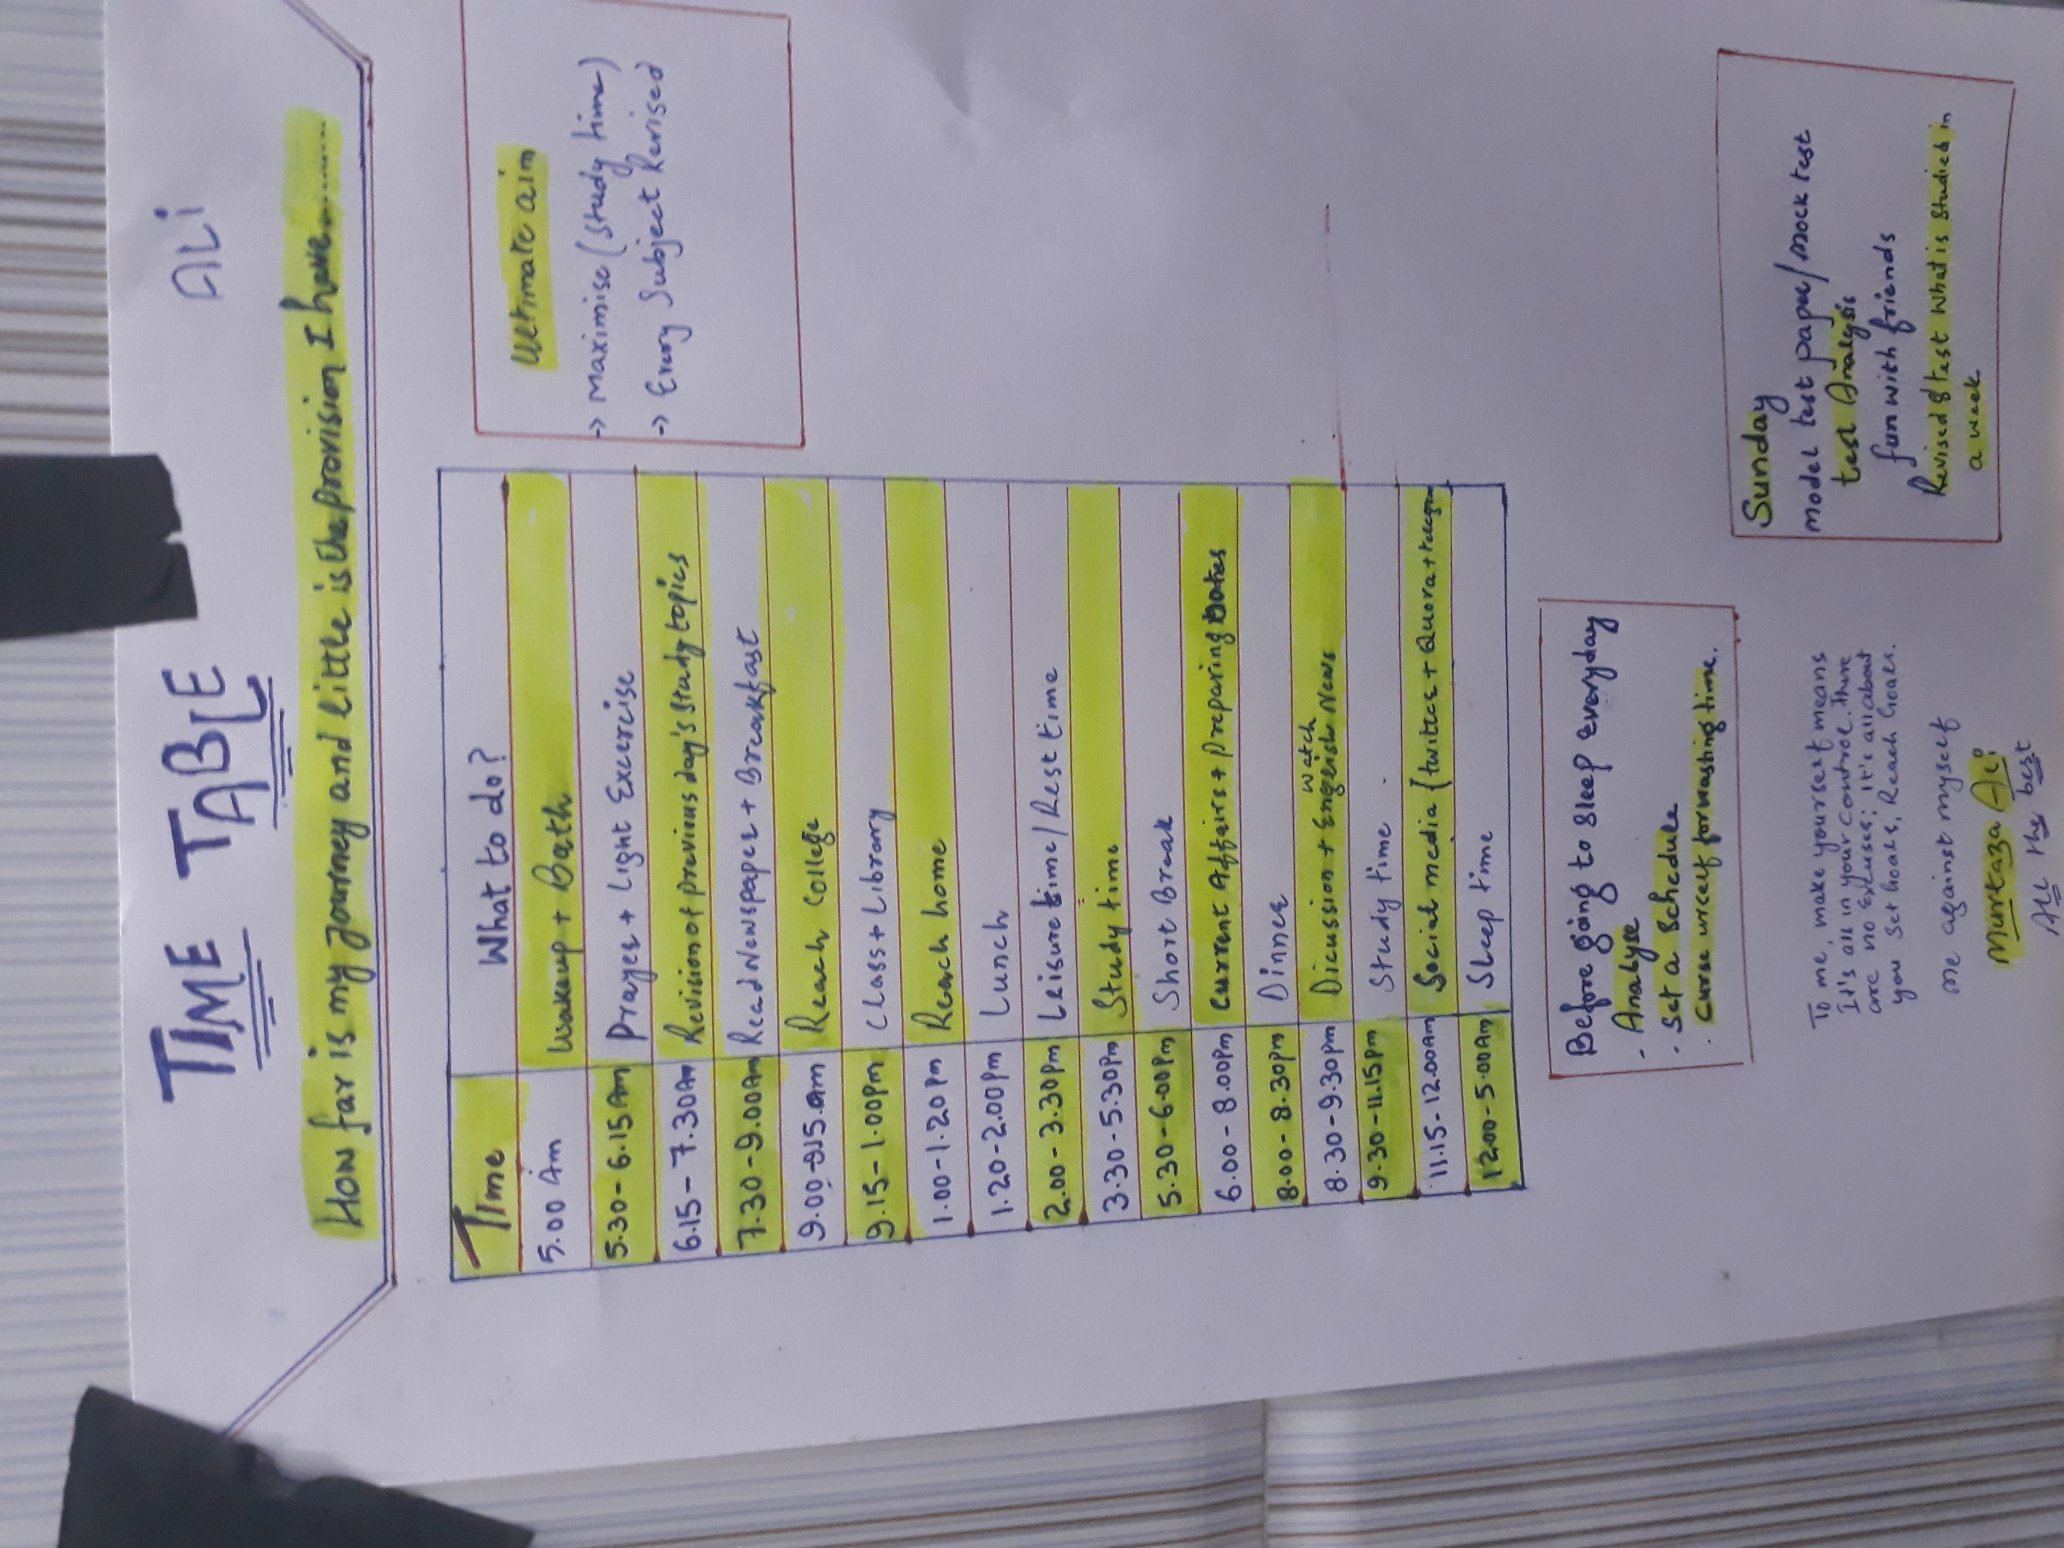 TIME TABLE
ALi
How far is my Journey and Little is the provision I have........
Ultimate aim
-> Maximise (Study time)
-> Every Subject Revised
Time What to do?
5.00 Am Wakeup + Bath
5.30 - 6.15 Am Prayer + Light Excercise
6.15 - 7.30 Am Revision of previous day's Study topics
7.30 - 9.00 Am Read Newspaper + Breakfast
9.00 - 9.15 am Reach College
9.15 - 1.00 Pm Class + Library
1.00 - 1.20 Pm Reach home
1.20 - 2.00 Pm Lunch
2.00 - 3.30 Pm Leisure time / Rest time
3.30 - 5.30 Pm Study time
5.30 - 6.00 Pm Short Break
6.00 - 8.00 Pm Current Affairs + Preparing
8.00 - 8.30 Pm Dinner
8.30 - 9.30 pm Dicussion + watch English News
9.30 - 11.15 pm Study time.
11.15 - 12.00 Am Social media (twitter + Quora + telegram
12.00 - 5.00 Am Sleep time
Before going to sleep everyday
- Analyse
· Set a Schedule
· Curse urself for wasting time.
Sunday
Model test paper / Mock test
test Analysis
fun with friends
Revised & test What is Studied in
a week
To me, make yourself means
It's all in your control. There
are no excuses; it's all about
you Set Goals, Reach Goals.
me against myself
Murtaza Ali
All the best